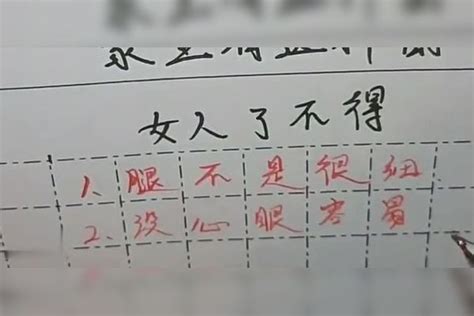 女人了不得
1、腿不是很细
2、没心眼容易